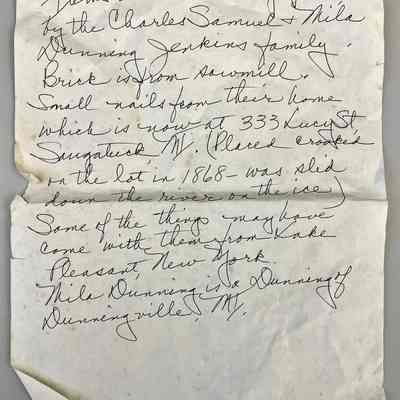 Items
by the Charles Samuel & Mila
Dunning Jenkins family.
Brick is from sawmill.
Small nails from their home
which is now at 333 Lucy St,
Saugatuck, MI. (Placed crooked
on the lot in 1868 - was slid
down the river on the ice)
Some of the things may have
come with them from Lake
Pleasant, New York.
Mila Dunning is a Dunning of
Dunningville, MI.